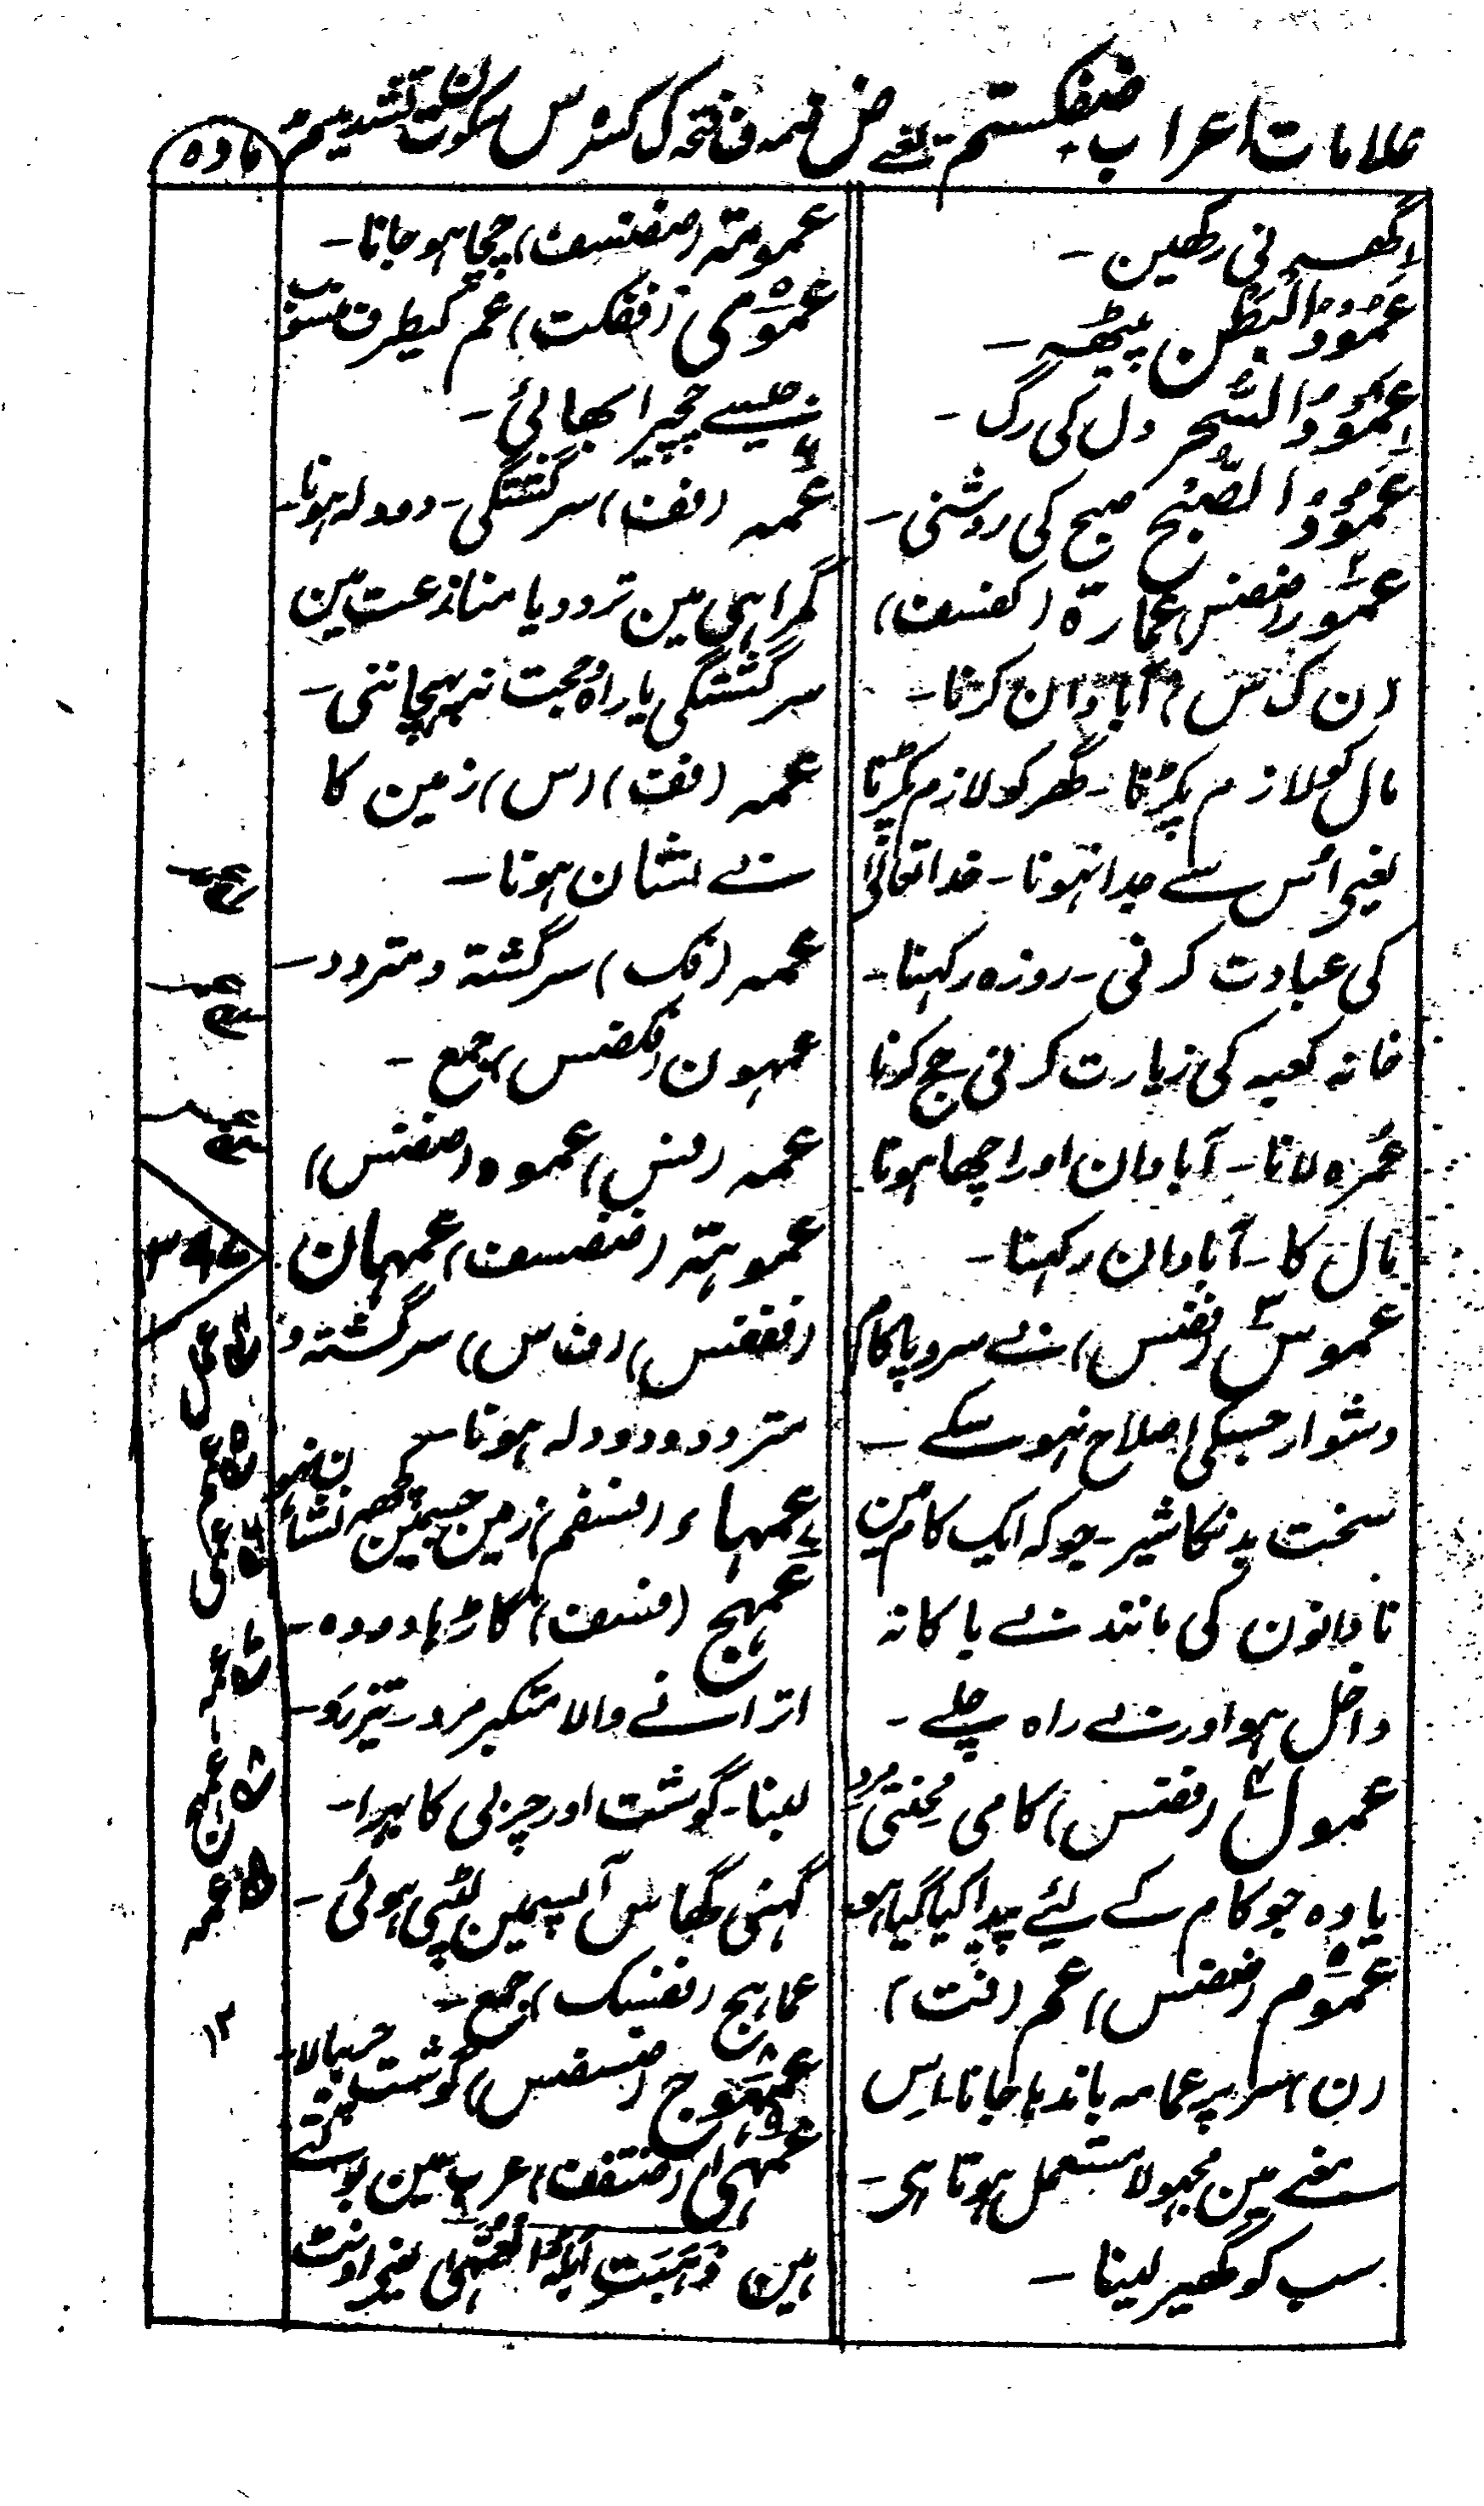 علامات اعراب ضفکستم یعنے ض ضمہ ف فتحہ ک کسرہ س سکون ت تشدید م مد
مادہ
گھسہ نی رکھین۔
عَمُوْدُ الْبَطْن پیٹھہ۔
عَمُوْدُ السَّحْر دل کی رگ۔
عَمُوْدُ الصُّبْح صبح کی روشنی۔
عمور (ضفنس) عمارۃ (کفسف)
(ن ک س) آبادان کرنا۔
مال کو لازم پکڑنا۔ گھر کو لازم پکڑنا
یعنے اس سے جدا نہونا۔ خدا تعالی
کی عبادت کرنی۔ روزہ رکہنا۔
خانہ کعبہ کی زیارت کرنی حج کرنا
عمرہ لانا۔ آبادان اور اچھا ہونا
مال کا۔ آبادان رکہنا۔
عموس (فضس) بے سروپا کام
دشوار جسکی اصلاح نہوسکے۔
سخت بدنکا شیر۔ جو کہ ایک کام مین
نادانون کی مانند بے باکانہ
داخل ہو اور بے راہ چلے۔
عمول (فضس) کامی محنتی مرد
یا وہ جو کام کے لئے پیدا کیا گیا ہو
عموم (ضفنس) عم (فت)
(ن) سر پر عمامہ باندہا جانا۔ اس
معنے مین مجہولا مستعمل ہوتا ہی۔
سب کو گھیر لینا۔
عمومتہ (ضفنسف) چچا ہو جانا۔
عمومی (ضفکت) عم کیطرف منسوب
جیسے چچیرا بھائی۔
عمہ (فف) سرگشتگی۔ دودلہ ہونا۔
گمراہی مین تردد یا منازعت مین
سرگشتگی یا راہ محبت نہ پہچاننی۔
عمہ (فف) (س) زمین کا
بے نشان ہونا۔
عمہ (فک) سرگشتہ و متردد۔
عمہون (فکضس) جمع۔
عمہ (فس) عموہ (ضفس)
عموہتہ (ضفسف) عمہان
(ففس) (ف س) سرگشتہ و
متردد و دودلہ ہونا۔
عمہاء (فسفم) زمین جسمین کچھہ نشان نہو
عمہج (فسف) گاڑہا دودہ۔
اترانے والا متکبر مرد۔ تیز رو۔
لبنا۔ گوشت اور چربی کا بہرا۔
گہنی گھاس آپسمین لپٹی ہوئی۔
عماہج (ففسک) جمع۔
عمہوج (ضسضس) گوشت
عمہی (ضتفف) عرب مین بولتے
ہین ذَهَبَت اِبِلُهُ الْعُمَّهٰى یعنے اونٹ